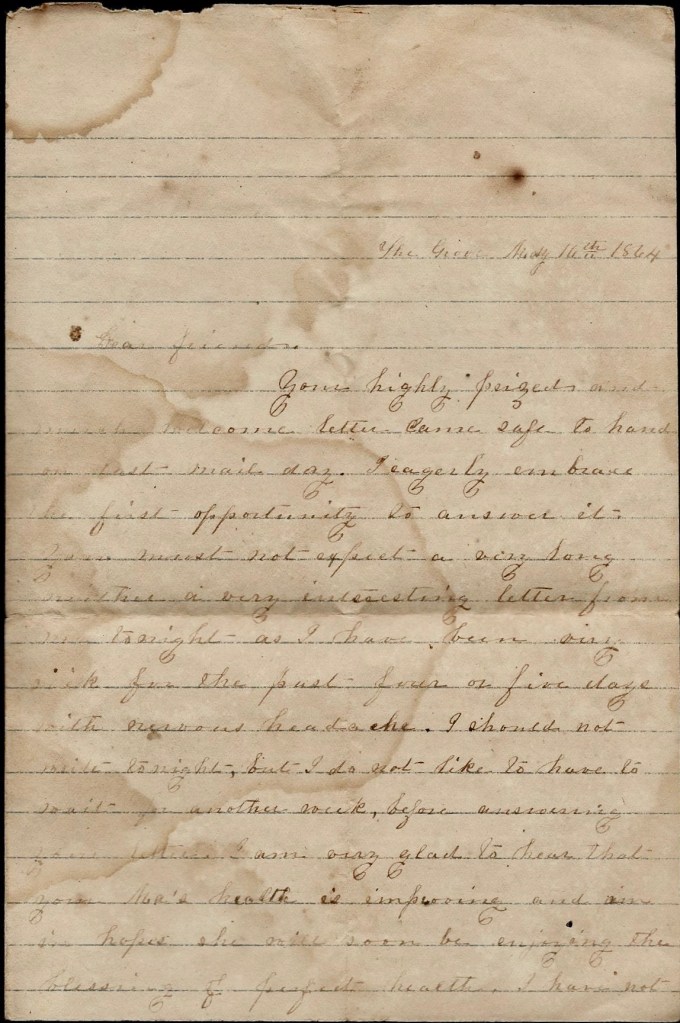 The Grove May 16th 1864
Dear friend,
Your highly prized and
much welcome letter came safe to hand
on last mail day. I eagerly embrace
the first opportunity to answer it.
You must not expect a very long
neither a very interesting letter from
me tonight as I have been very
sick for the past four or five days
with nervous headache. I should not
write tonight, but I do not like to have to
wait for another week, before answering
your letter. I am very glad to hear that
your Ma's health is improving and am
in hopes she will soon be enjoying the
blessing of perfect health. I have not